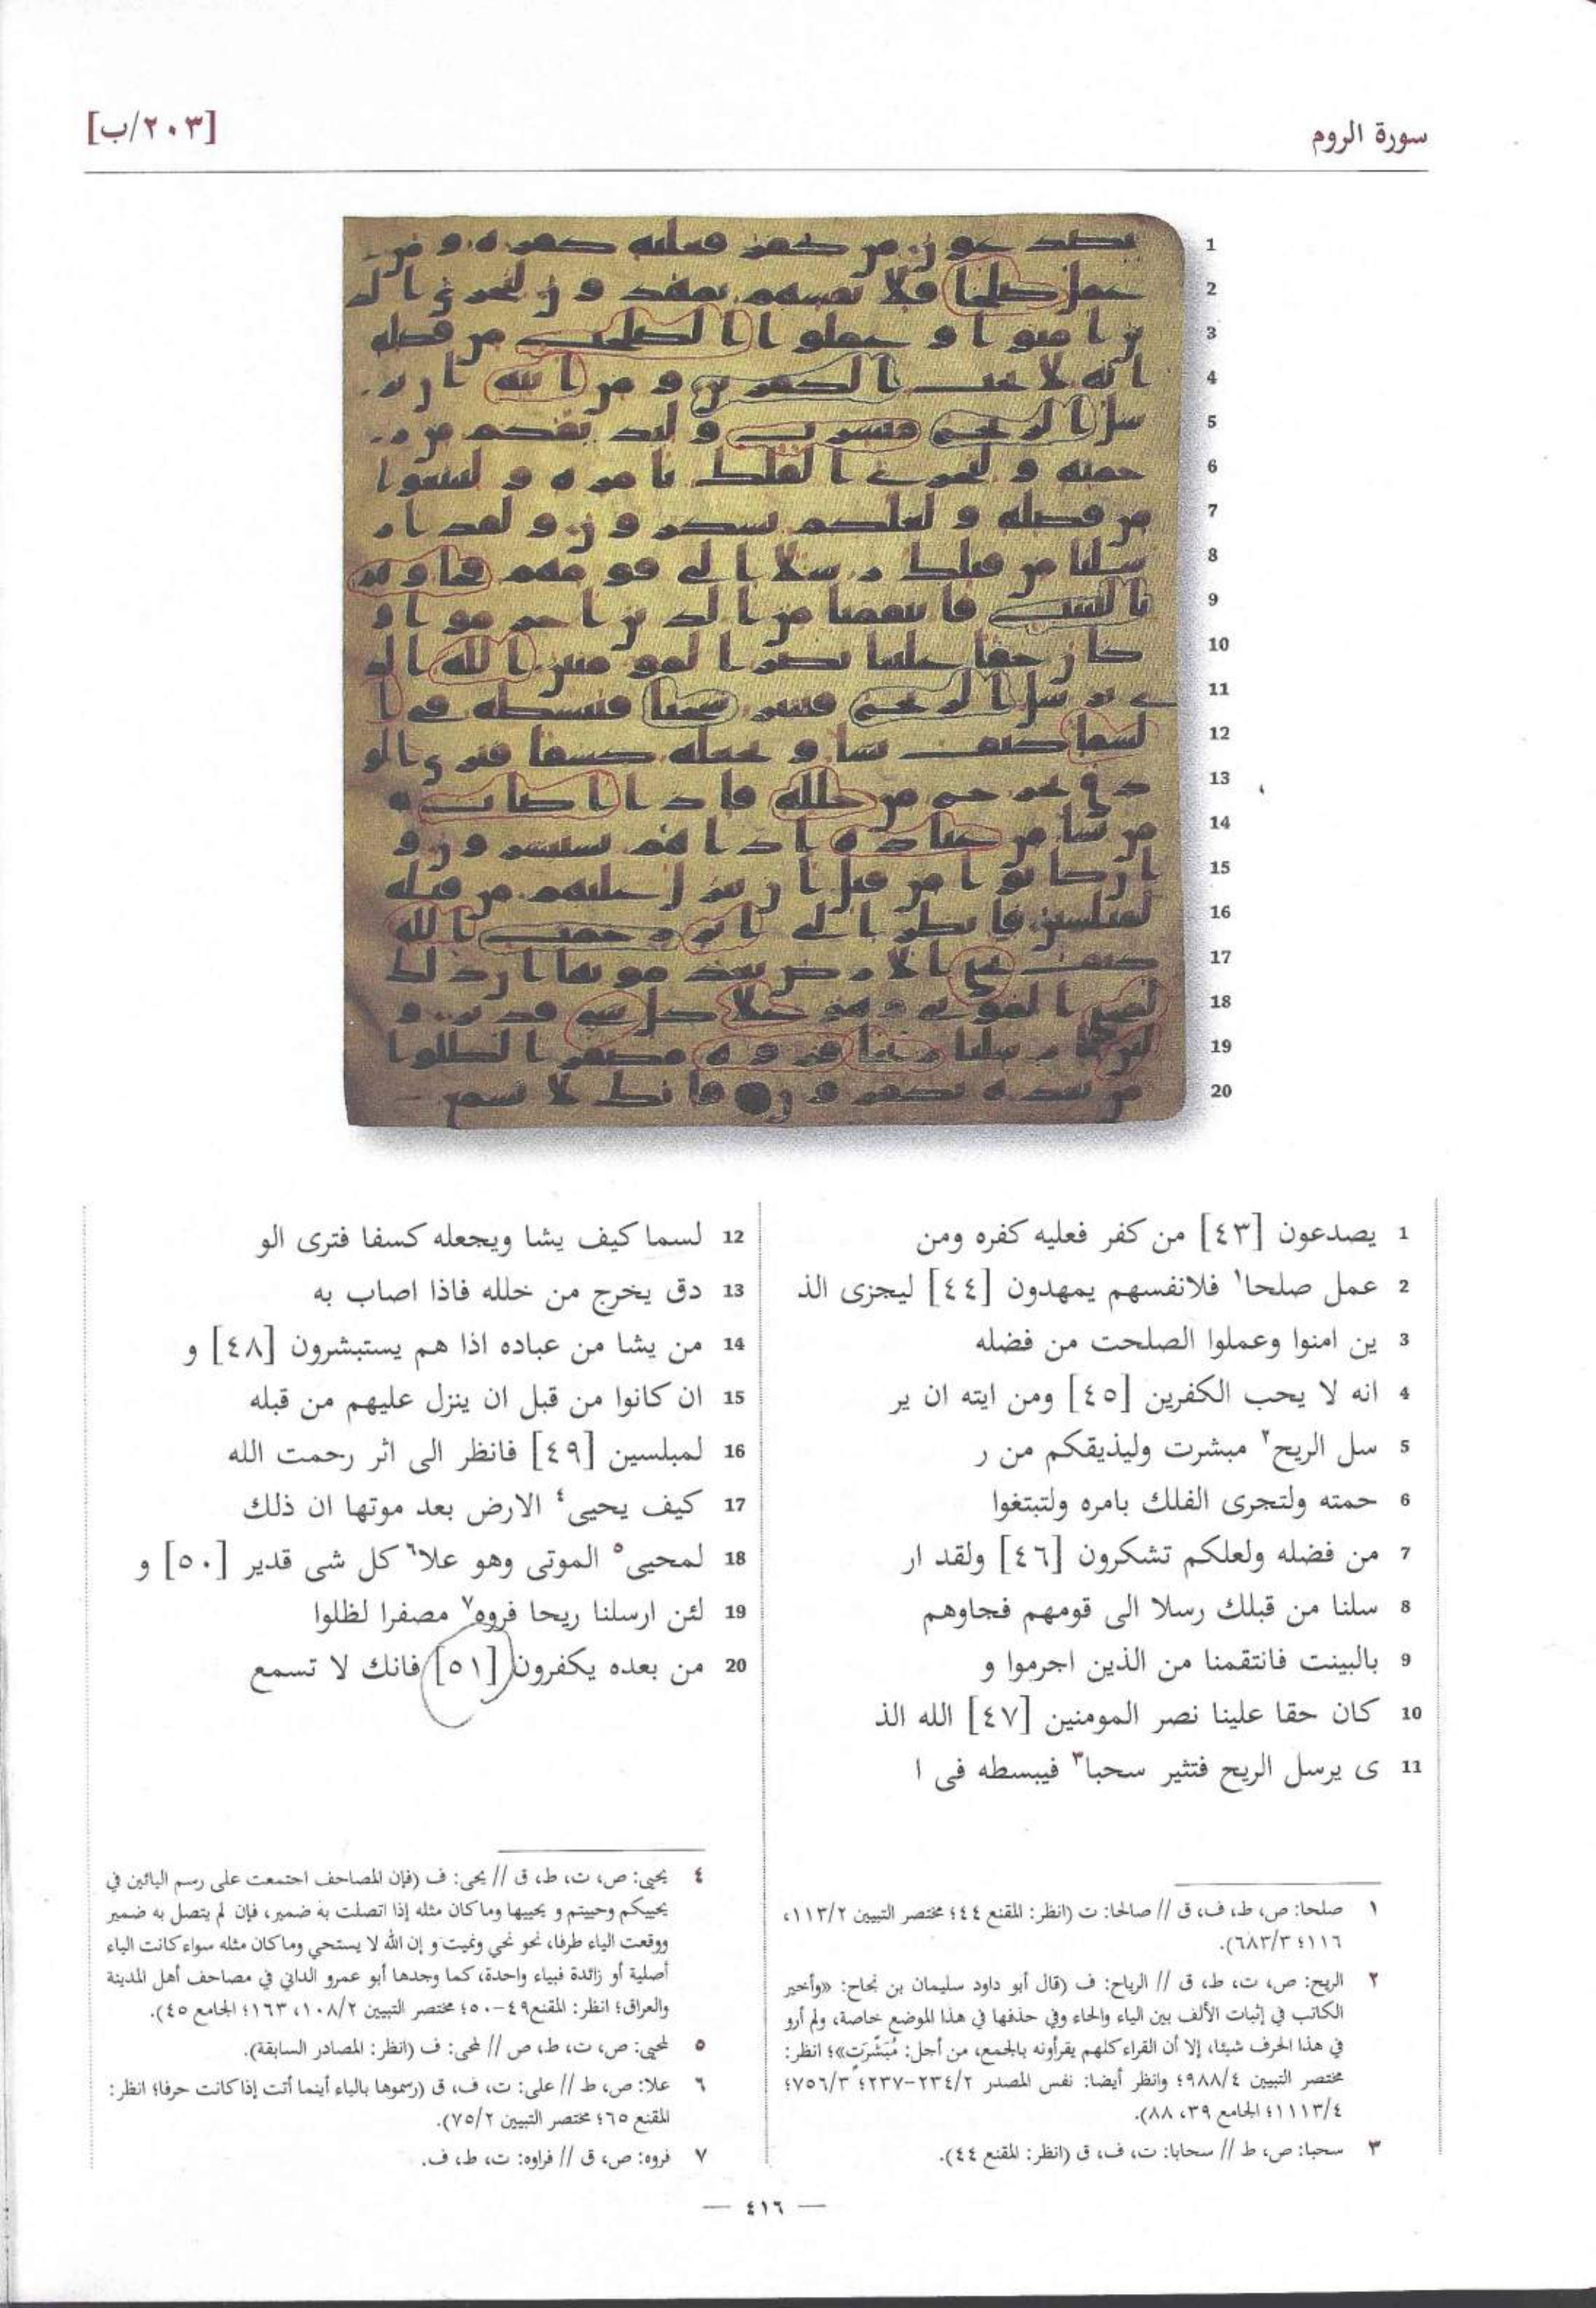 سورة الروم
[٢٠٣/ب]
1 يصدعون [٤٣] من كفر فعليه كفره ومن
2 عمل صلحا١ فلانفسهم يمهدون [٤٤] ليجزى الذ
3 ين امنوا وعملوا الصلحت من فضله
4 انه لا يحب الكفرين [٤٥] ومن ايته ان ير
5 سل الريح٢ مبشرت وليذيقكم من ر
6 حمته ولتجرى الفلك بامره ولتبتغوا
7 من فضله ولعلكم تشكرون [٤٦] ولقد ار
8 سلنا من قبلك رسلا الى قومهم فجاوهم
9 بالبينت فانتقمنا من الذين اجرموا و
10 كان حقا علينا نصر المومنين [٤٧] الله الذ
11 ى يرسل الريح فتثير سحبا٣ فيبسطه فى ا
12 لسما كيف يشا ويجعله كسفا فترى الو
13 دق يخرج من خلله فاذا اصاب به
14 من يشا من عباده اذا هم يستبشرون [٤٨] و
15 ان كانوا من قبل ان ينزل عليهم من قبله
16 لمبلسين [٤٩] فانظر الى اثر رحمت الله
17 كيف يحيى٤ الارض بعد موتها ان ذلك
18 لمحيى٥ الموتى وهو علا٦ كل شى قدير [٥٠] و
19 لئن ارسلنا ريحا فروه٧ مصفرا لظلوا
20 من بعده يكفرون [٥١] فانك لا تسمع
١ صلحا: ص، ط، ف، ق // صالحا: ت (انظر: المقنع ٤٤؛ مختصر التبيين ١١٣/٢،
١١٦؛ ٦٨٣/٣).
٢ الريح: ص، ت، ط، ق // الرياح: ف (قال أبو داود سليمان بن نجاح: «وأخير
الكاتب في إثبات الألف بين الياء والحاء وفي حذفها في هذا الموضع خاصة، ولم أرو
في هذا الحرف شيئا، إلا أن القراء كلهم يقرأونه بالجمع، من أجل: مُبَشِّرَتٍ»؛ انظر:
مختصر التبيين ٩٨٨/٤؛ وانظر أيضا: نفس المصدر ٢٣٤/٢-٢٣٧؛ ٧٥٦/٣؛
١١١٣/٤؛ الجامع ٣٩، ٨٨).
٣ سحبا: ص، ط // سحابا: ت، ف، ق (انظر: المقنع ٤٤).
٤ يحيى: ص، ت، ط، ق // يحى: ف (فإن المصاحف اجتمعت على رسم اليائين في
يحييكم وحييتم و يحييها وما كان مثله إذا اتصلت به ضمير، فإن لم يتصل به ضمير
ووقعت الياء طرفا، نحو نحي ونميت و إن الله لا يستحي وما كان مثله سواء كانت الياء
أصلية أو زائدة فبياء واحدة، كما وجدها أبو عمرو الداني في مصاحف أهل المدينة
والعراق؛ انظر: المقنع٤٩-٥٠؛ مختصر التبيين ١٠٨/٢، ١٦٣؛ الجامع ٤٥).
٥ لمحيى: ص، ت، ط، ص // لمحى: ف (انظر: المصادر السابقة).
٦ علا: ص، ط // على: ت، ف، ق (رسموها بالياء أينما أتت إذا كانت حرفا؛ انظر:
المقنع ٦٥؛ مختصر التبيين ٧٥/٢).
٧ فروه: ص، ق // فراوه: ت، ط، ف.
— ٤١٦ —